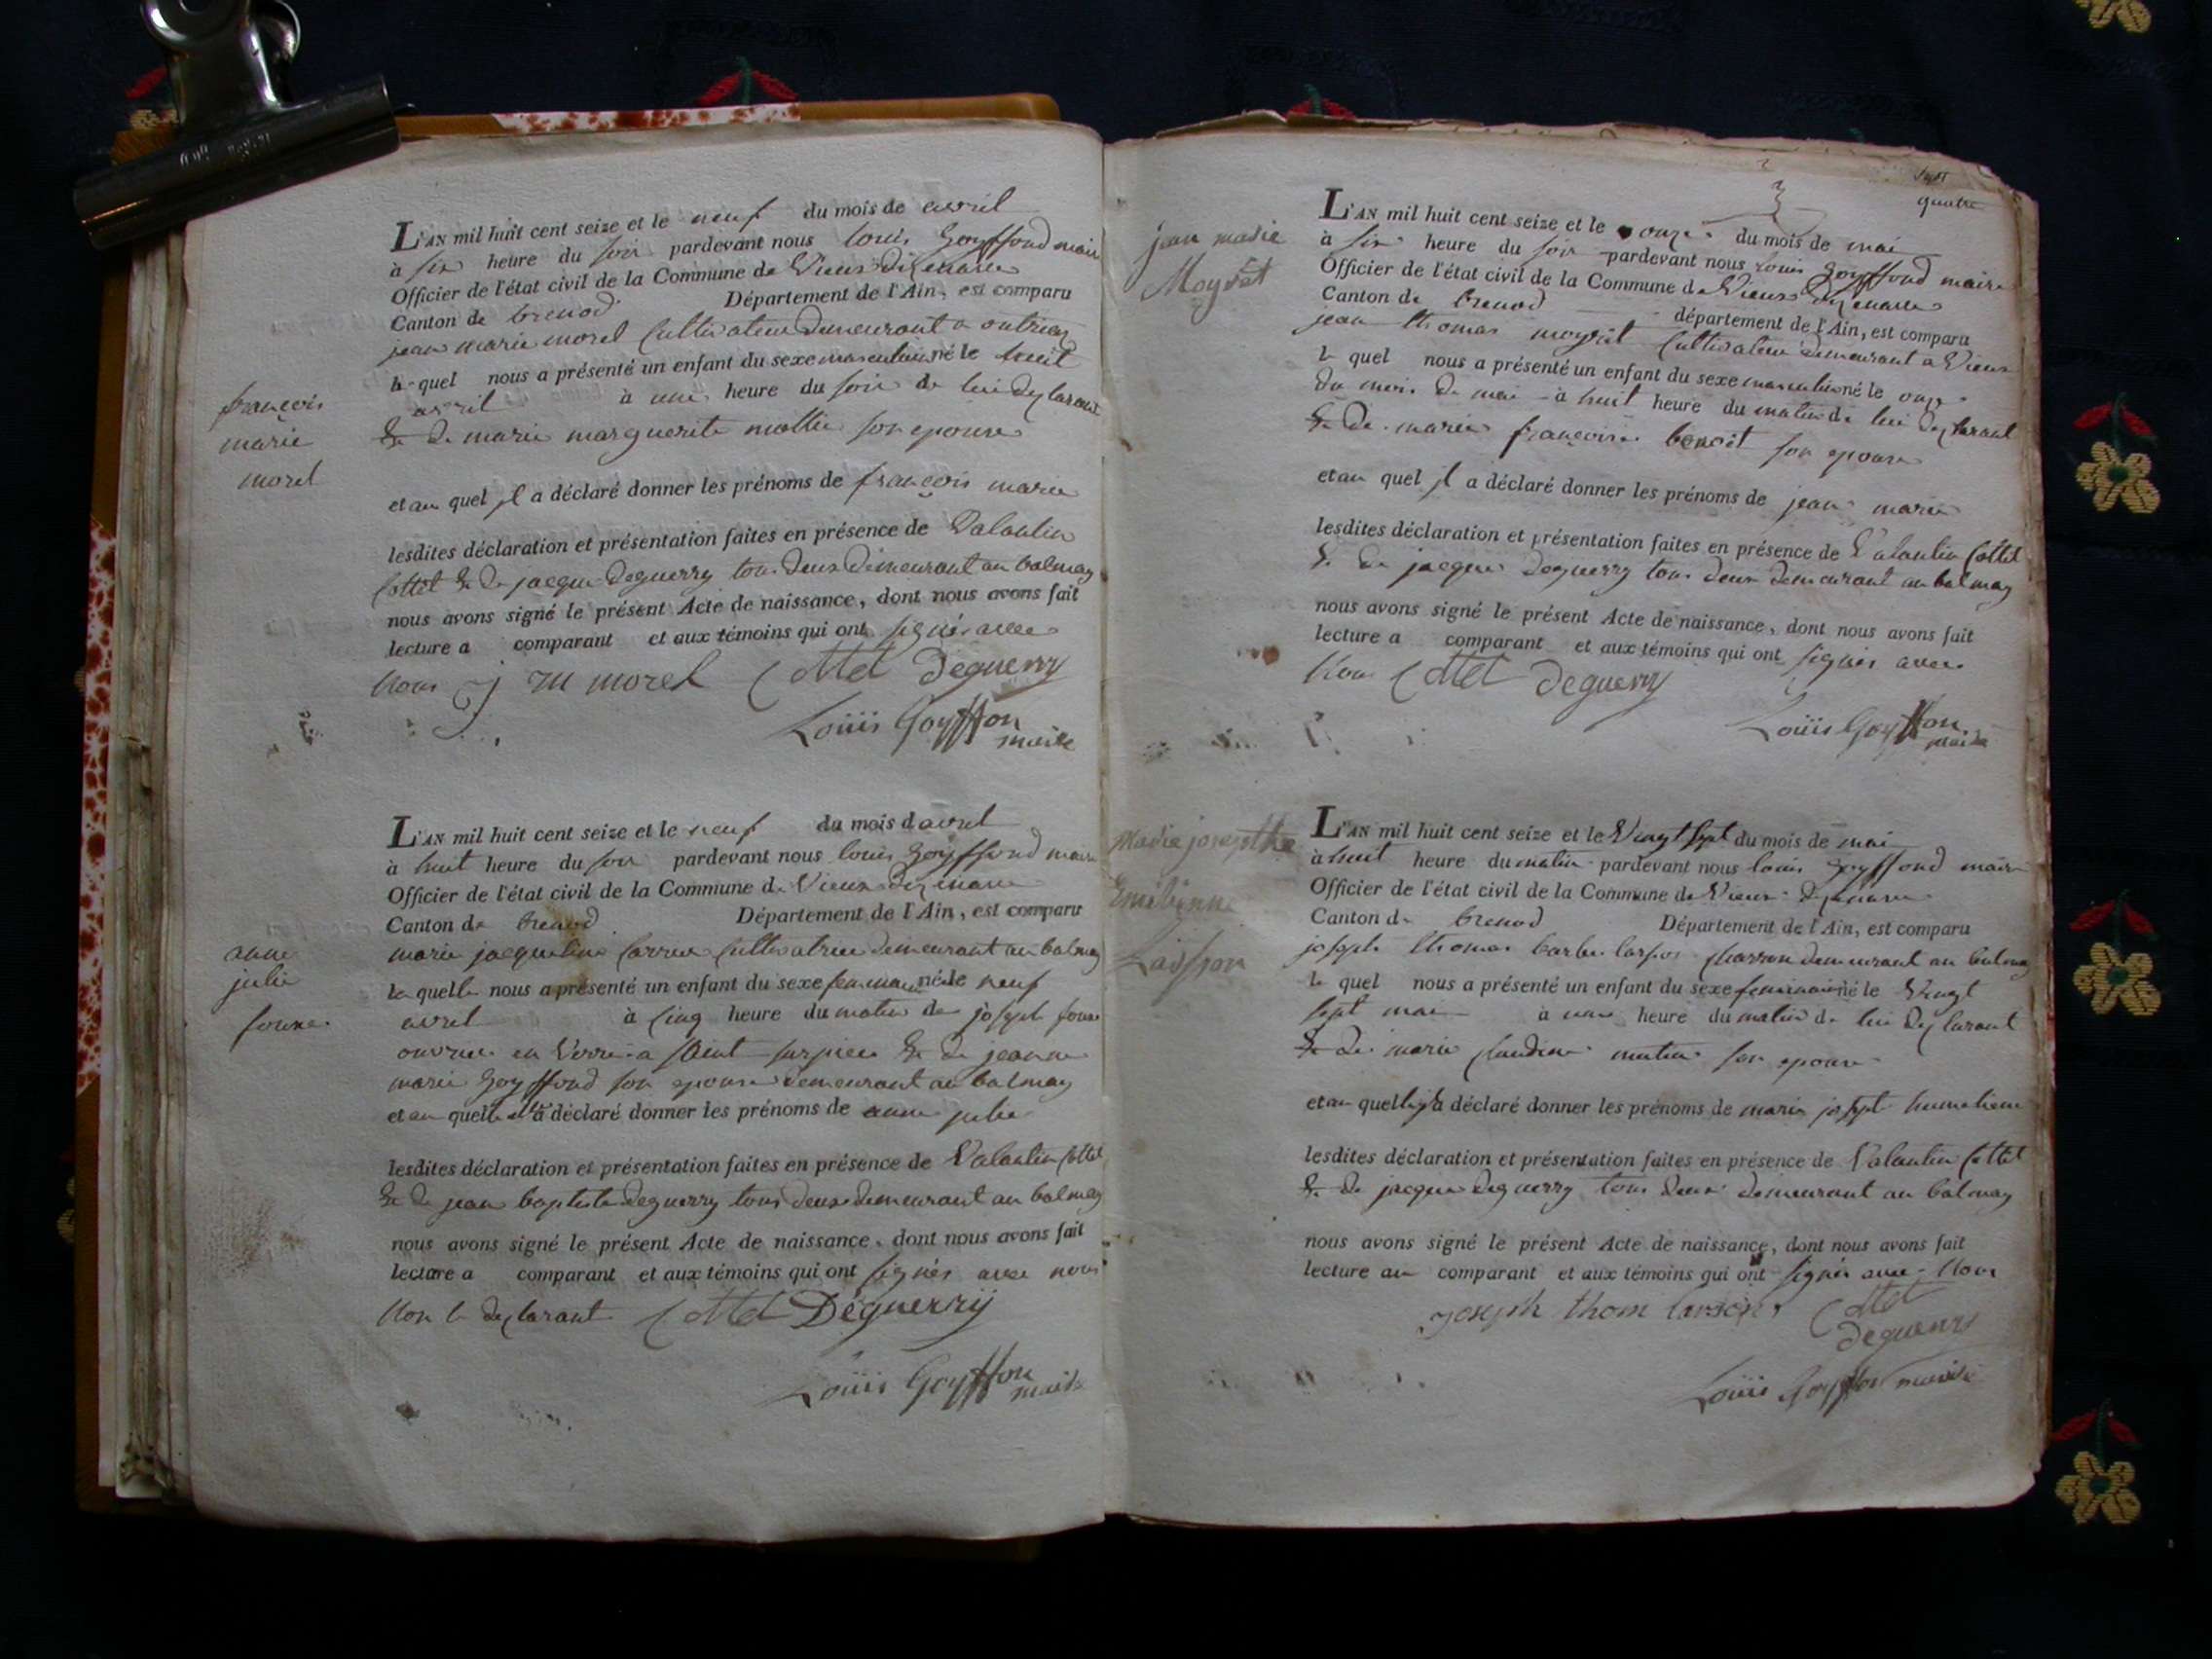 françois
marie
morel
L'AN mil huit cent seize et le neuf du mois de avril
à six heure du soir pardevant nous louis goyffond maire
Officier de l'état civil de la Commune de Vieux dizenave
Canton de brenod Département de l'Ain, est comparu
jean marie morel Cultivateur demeurant a outriaz
le quel nous a présenté un enfant du sexe masculin né le huit
avril à une heure du soir de lui declarant
& de marie marguerite mollie son epouse
et au quel il a déclaré donner les prénoms de françois marie
lesdites déclaration et présentation faites en présence de Valantin
Cottet & de jacque deguerry tous deux demeurant au balmay
nous avons signé le présent Acte de naissance, dont nous avons fait
lecture a comparant et aux témoins qui ont signés avec
Nous j m morel Cottet Deguerry
Louis Goyffon
maire
anne
julie
L'AN mil huit cent seize et le neuf du mois d avril
à huit heure du soir pardevant nous louis goyffond maire
Officier de l'état civil de la Commune de Vieux dizenave
Canton de brenod Département de l'Ain, est comparu
marie jacqueline Carrier Cultivatrice demeurant au balmay
la quelle nous a présenté un enfant du sexe femenain né le neuf
avril à cinq heure du matin de joseph
ouvrier en Verre a saint & de jeanne
marie goyffond son epouse demeurant au balmay
et au quelle a déclaré donner les prénoms de anne julie
lesdites déclaration et présentation faites en présence de Valantin Cottet
& de jean baptiste deguerry tous deux demeurant au balmay
nous avons signé le présent Acte de naissance, dont nous avons fait
lecture a comparant et aux témoins qui ont signés avec nous
Non le declarant Cottet Déguerrij
Louis Goyffon
maire
sept
quatre
jean marie
Moyrat
L'AN mil huit cent seize et le onze du mois de mai
à six heure du soir pardevant nous louis goyffond maire
Officier de l'état civil de la Commune de Vieux dizenave
Canton de brenod département de l'Ain, est comparu
jean thomas moyrat Cultivateur demeurant a Vieux
le quel nous a présenté un enfant du sexe masculin né le onze
du mois de mai à huit heure du matin de lui declarant
& de marie françoise benoit son epouse
et au quel il a déclaré donner les prénoms de jean marie
lesdites déclaration et présentation faites en présence de Valantin Cottet
& de jacque deguerry tous deux demeurant au balmay
nous avons signé le présent Acte de naissance, dont nous avons fait
lecture a comparant et aux témoins qui ont signés avec
Nous Cottet deguerry
Louis Goyffon
maire
Marie josephthe
Emélienne
L'AN mil huit cent seize et le Vingt sept du mois de mai
à huit heure du matin pardevant nous louis goyffond maire
Officier de l'état civil de la Commune de Vieux dizenave
Canton de brenod Département de l'Ain, est comparu
joseph thomas barbe charron demeurant au balmay
le quel nous a présenté un enfant du sexe femenain né le Vingt
sept mai à une heure du matin de lui declarant
& de marie claudine son epouse
et au quelle il a déclaré donner les prénoms de marie joseph humeliene
lesdites déclaration et présentation faites en présence de Valantin Cottet
& de jacque deguerry tous deux demeurant au balmay
nous avons signé le présent Acte de naissance, dont nous avons fait
lecture au comparant et aux témoins qui ont signés avec Nous
joseph thom Cottet
deguerry
Louis Goyffon maire